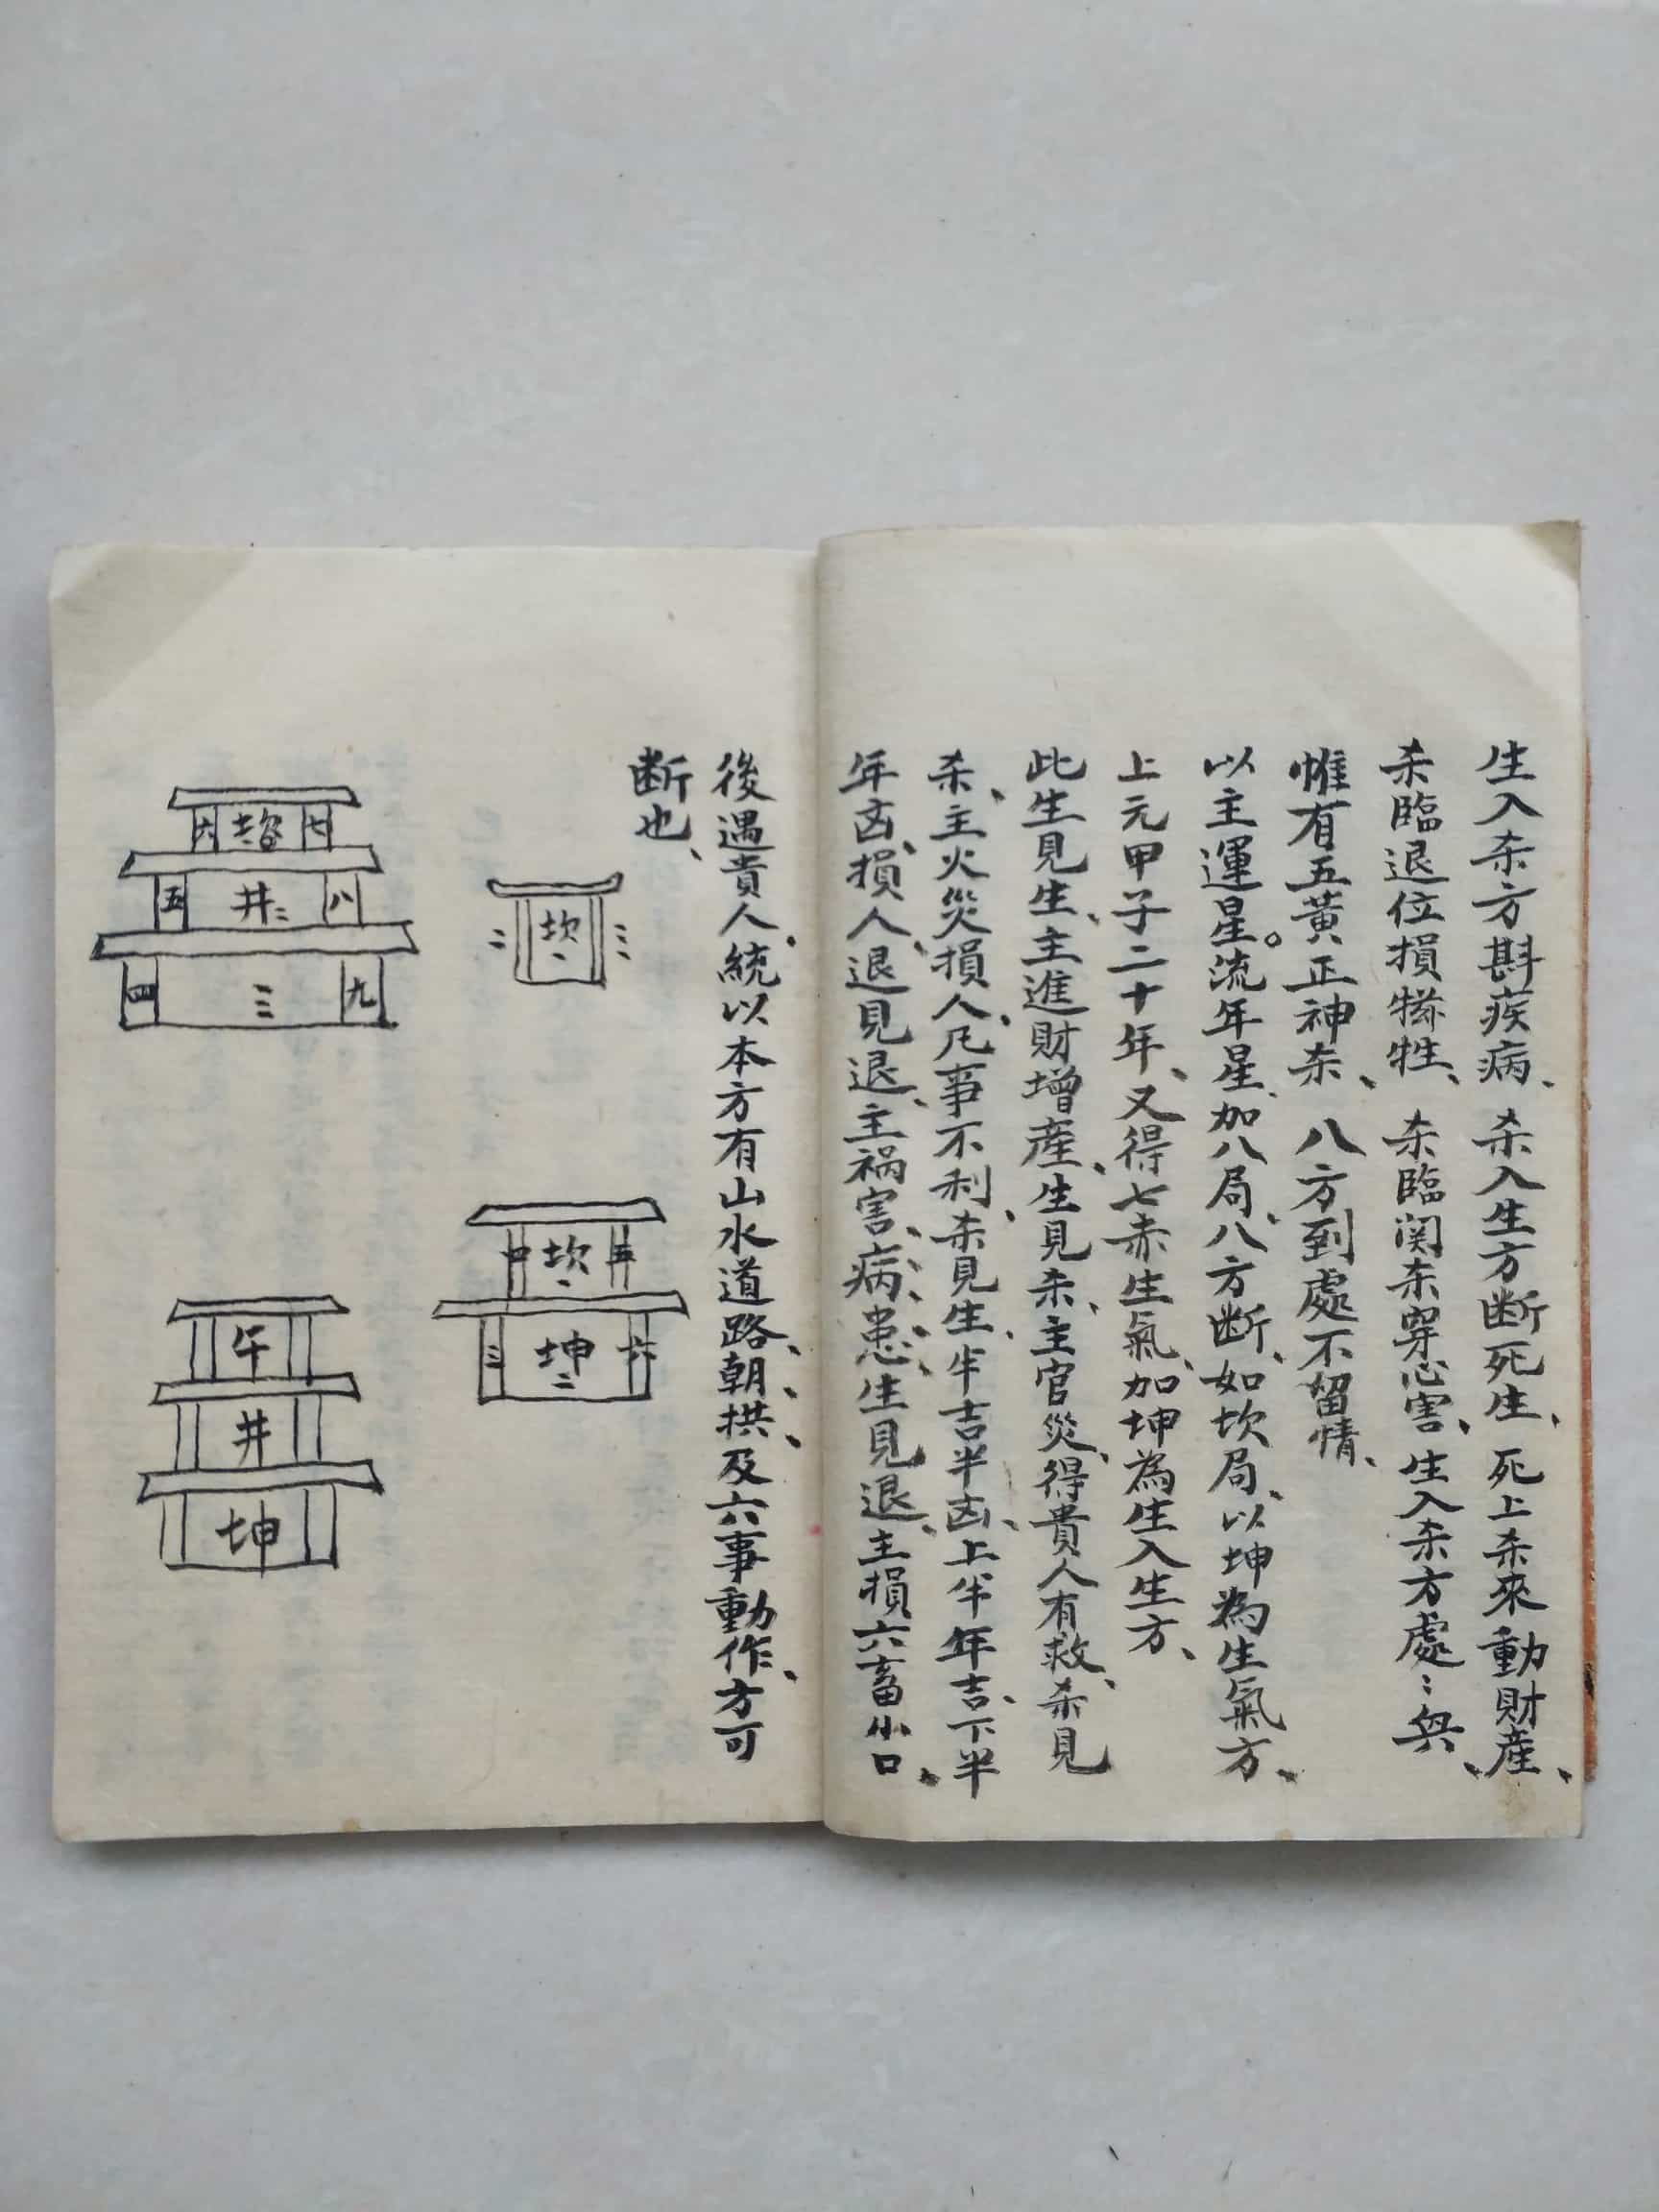 生入杀方斟疾病、杀入生方断死生、死上杀來動財産、
杀臨退位損犠牲、杀臨関杀穿心害、生入杀方處〻無、
惟有五黃正神杀、八方到處不留情、
以主運星。流年星、加八局、八方断、如坎局、以坤為生氣方、
上元甲子二十年、又得七赤生氣、加坤為生入生方、
此生見生、主進財增産、生見杀、主官災、得貴人有救、杀見
杀、主火災損人、凡事不利、杀見生、半吉半凶、上半年吉、下半
年凶、損人、退見退、主禍害、病患、生見退、主損六畜小口、
後遇貴人、統以本方有山水道路、朝拱、及六事動作、方可
断也、
坎一
二 三
四 坎一 五
三 坤二 六
六 七
五 井二 八
四 三 九
午
井
坤